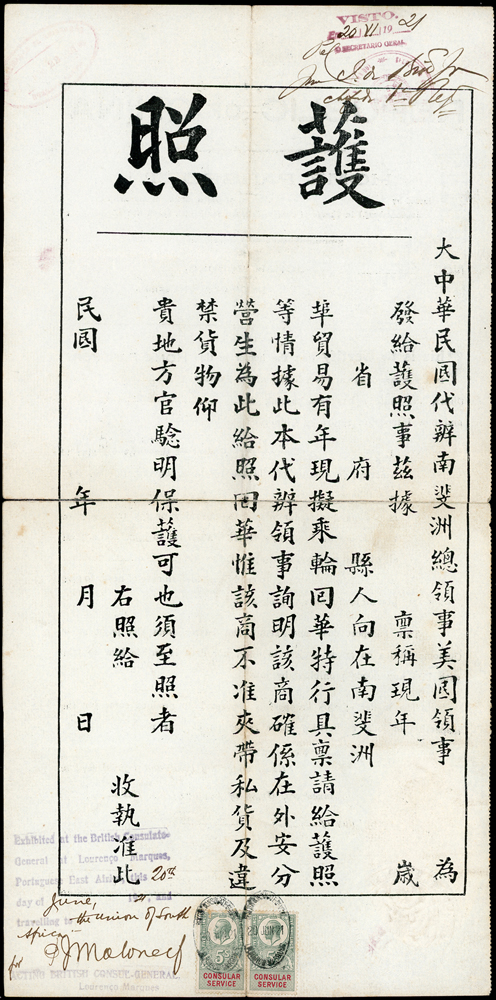 VISTO.
20 VI 1921
O SECRETARIO GERAL
護照
大中華民國代辦南斐洲總領事美國領事 為
發給護照事茲據 禀稱現年 歲
省 府 縣人向在南斐洲
埠貿易有年現擬乘輪回華特行具禀請給護照
等情據此本代辦領事詢明該商確係在外安分
營生為此給照回華惟該商不准夾帶私貨及違
禁貨物仰
貴地方官驗明保護可也須至照者
右照給 收執准此
民國 年 月 日
Exhibited at the British Consulate-
General at Lourenço Marques,
Portuguese East Africa, this 20th
day of June, 19 and
travelling to the Union of South
Africa
for P J Maloney
ACTING BRITISH CONSUL-GENERAL
Lourenço Marques
20 JUN 21
CONSULAR
SERVICE
CONSULAR
SERVICE